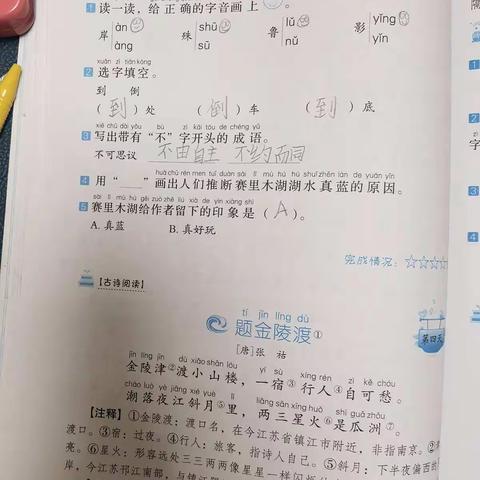 1 读一读，给正确的字音画上 。
岸 àn àng 珠 shū sū 鲁 lǔ nǔ 影 yǐng yǐn
xuǎn zì tián kòng
2 选字填空。
到 倒
（到）处 （倒）车 （到）底
xiě chū dài yǒu bù zì kāi tóu de chéng yǔ
3 写出带有“不”字开头的成语。
不可思议 不由自主 不约而同
huà chū rén men tuī duàn sài lǐ mù hú hú shuǐ zhēn lán de yuán yīn
4 用“ ”画出人们推断赛里木湖湖水真蓝的原因。
sài lǐ mù hú gěi zuò zhě liú xià de yìn xiàng shì
5 赛里木湖给作者留下的印象是（A）。
A. 真蓝 B. 真好玩
完成情况：☆☆☆☆
【古诗阅读】
tí jīn líng dù
题金陵渡①
第四天
[唐]张 祜
jīn líng jīn dù xiǎo shān lóu yì sù xíng rén zì kě chóu
金陵津②渡小山楼，一宿③行人④自可愁。
cháo luò yè jiāng xié yuè lǐ liǎng sān xīng huǒ shì guā zhōu
潮落夜江斜月⑤里，两三星火⑥是瓜洲⑦。
【注释】①金陵渡：渡口名，在今江苏省镇江市附近，非指南京。②
渡口。③宿：过夜。④行人：旅客，指诗人自己。⑤斜月：下半夜偏西的
亮。⑥星火：形容远处三三两两像星星一样闪烁
岸，今江苏邗江南部，与镇江